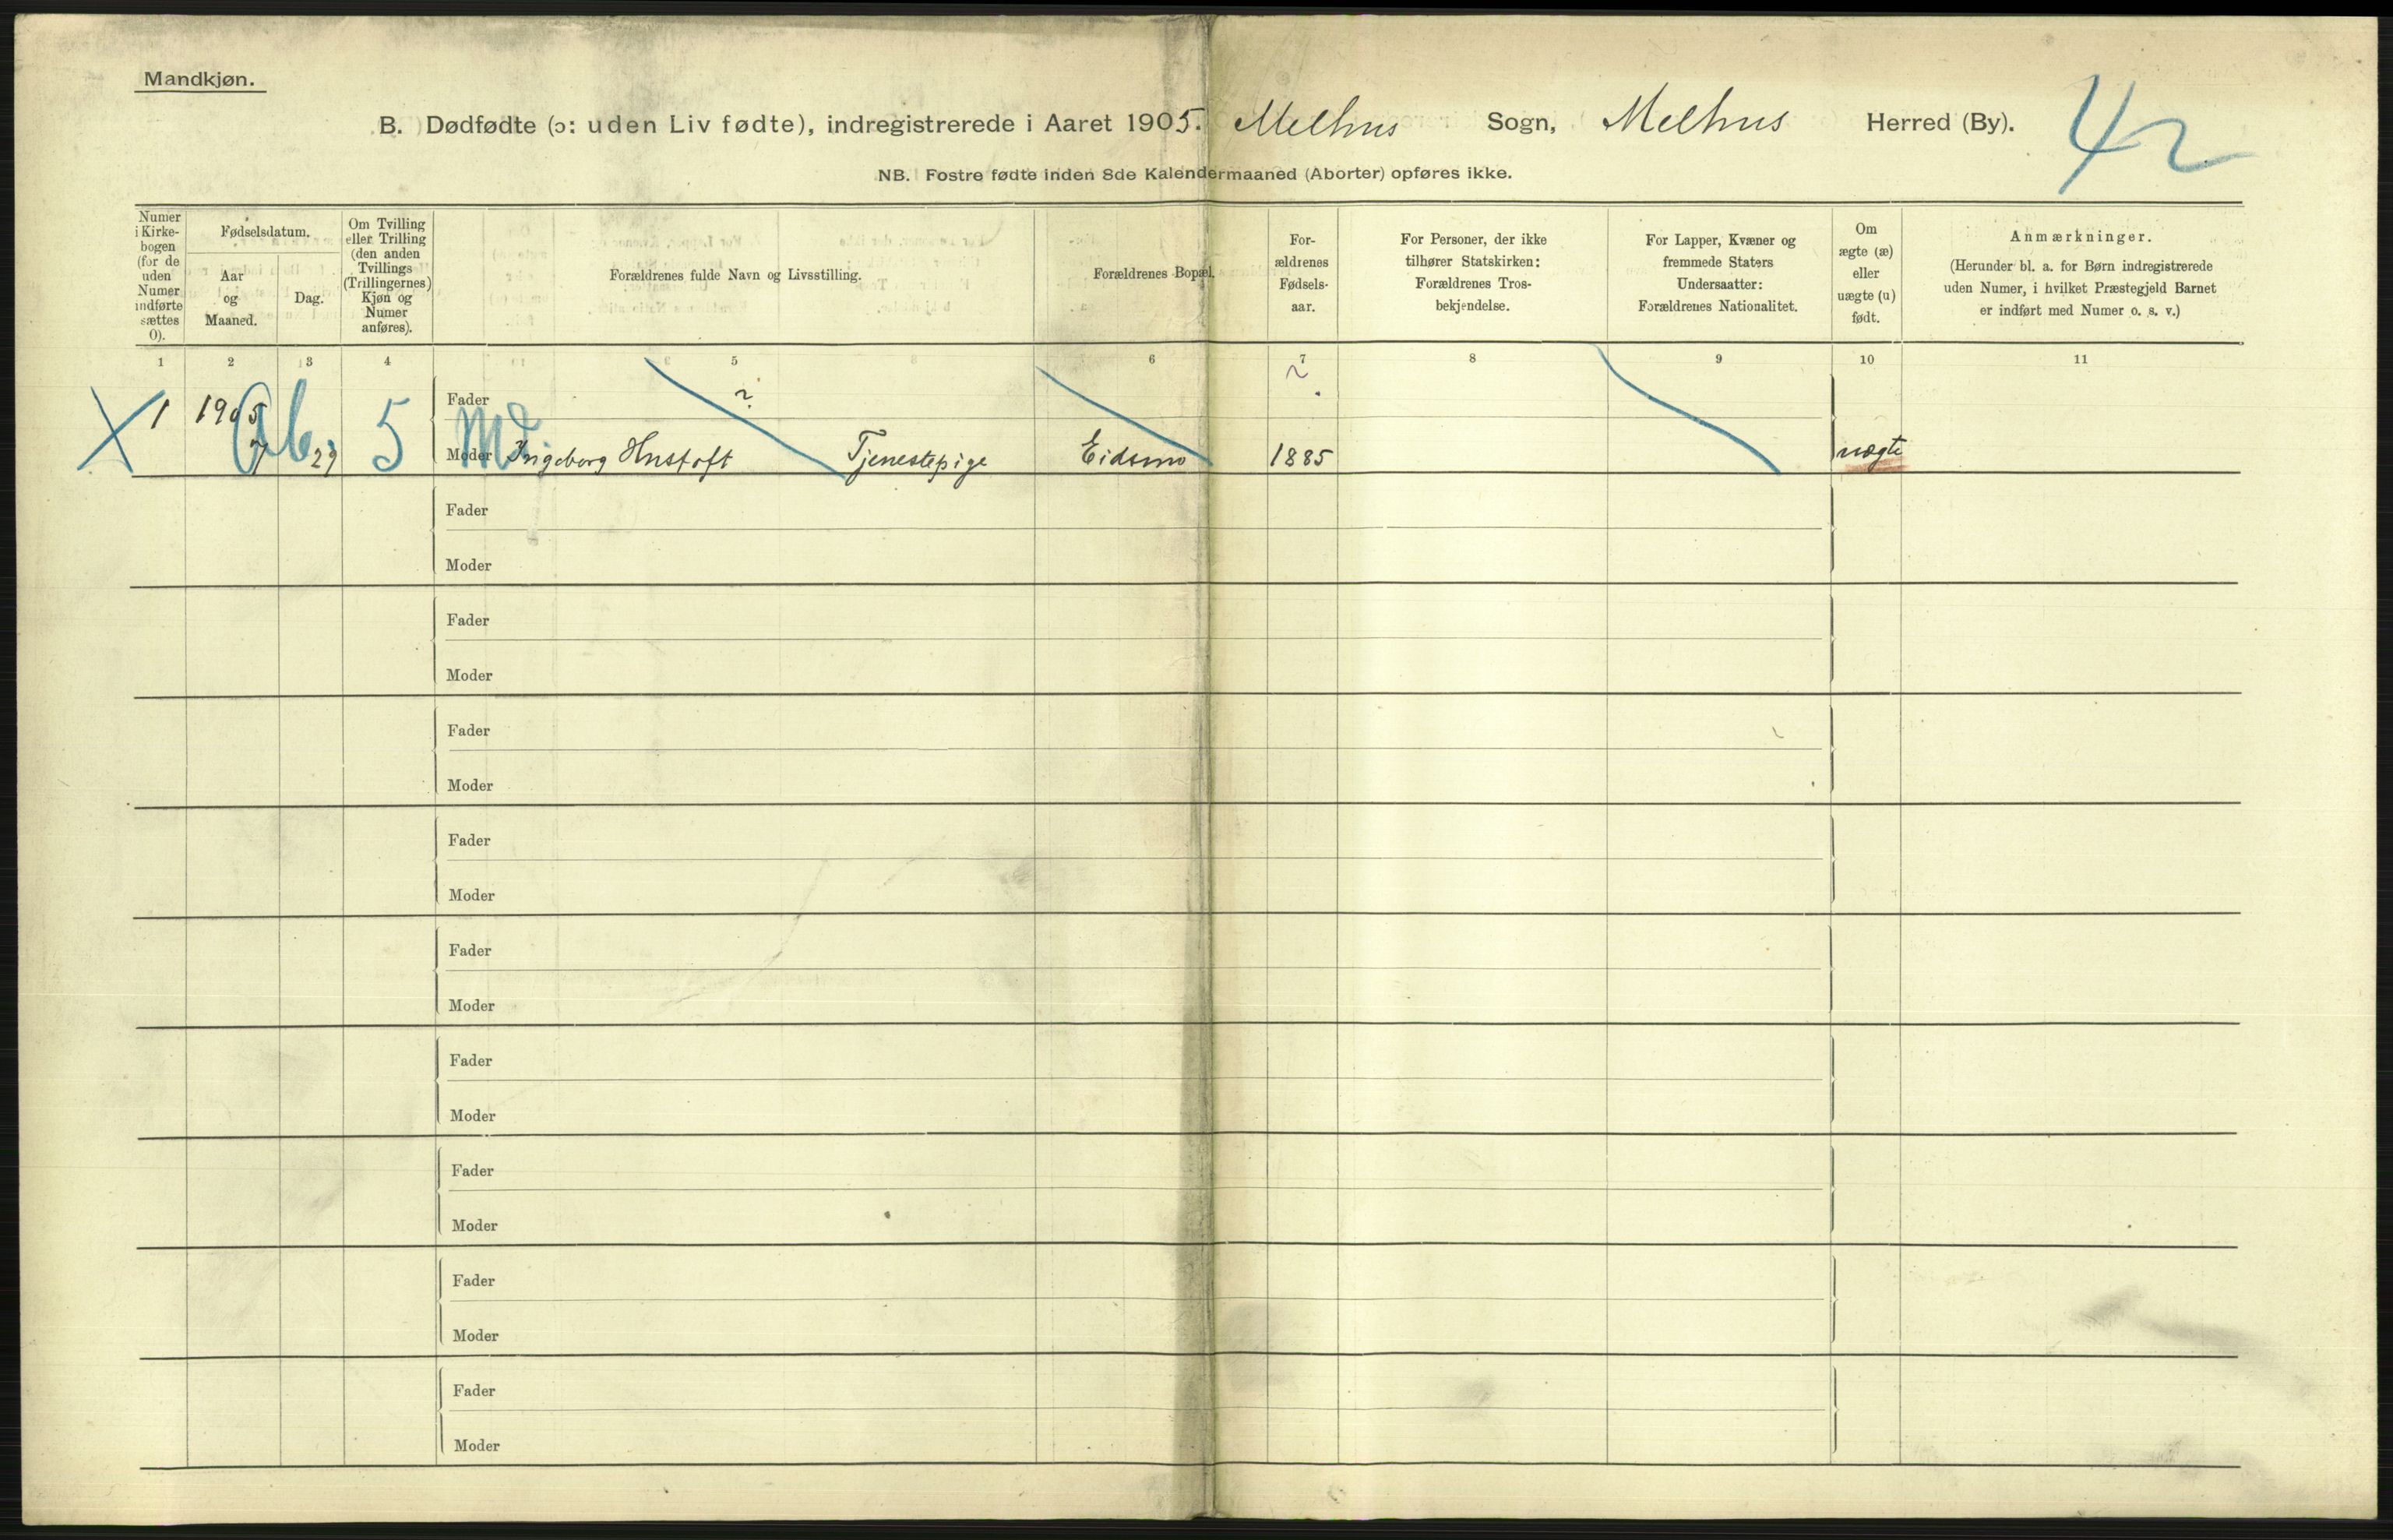 Mandkjøn.
B. Dødfødte (ɔ: uden Liv fødte), indregistrerede i Aaret 1905. Melhus Sogn, Melhus Herred (By). 42
NB. Fostre fødte inden 8de Kalendermaaned (Aborter) opføres ikke.
Numer
i Kirke-
bogen
(for de
uden
Numer
indførte
sættes
0).
Fødselsdatum.
Aar
og
Maaned.
Dag.
Om Tvilling
eller Trilling
(den anden
Tvillings
(Trillingernes)
Kjøn og
Numer
anføres).
Forældrenes fulde Navn og Livsstilling.
Forældrenes Bopæl.
For-
ældrenes
Fødsels-
aar.
For Personer, der ikke
tilhører Statskirken:
Forældrenes Tros-
bekjendelse.
For Lapper, Kvæner og
fremmede Staters
Undersaatter:
Forældrenes Nationalitet.
Om
ægte (æ)
eller
uægte (u)
født.
Anmærkninger.
(Herunder bl. a. for Børn indregistrerede
uden Numer, i hvilket Præstegjeld Barnet
er indført med Numer o. s. v.)
1 2 3 4 5 6 7 8 9 10 11
Fader ? ?
X 1 1905 5
7 29 Moder Ingeborg Hustoft Tjenestepige Eidsmo 1885 uægte
Fader
Moder
Fader
Moder
Fader
Moder
Fader
Moder
Fader
Moder
Fader
Moder
Fader
Moder
Fader
Moder
Fader
Moder